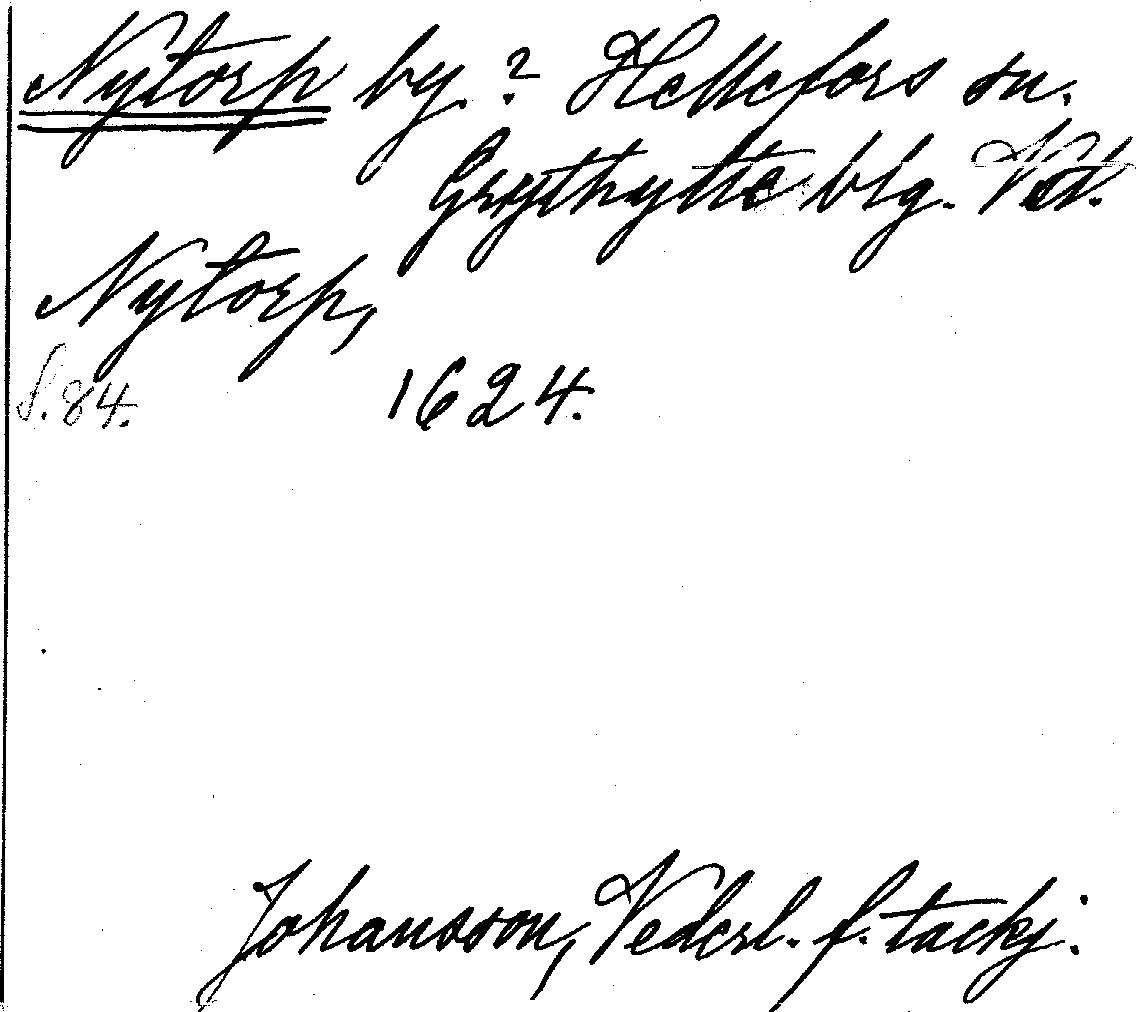 Nytorp by? Hellefors sn.
Grythytte blg. Vstl.
Nytorp,
S. 84. 1624.
Johansson, Vederl. f. tackj.